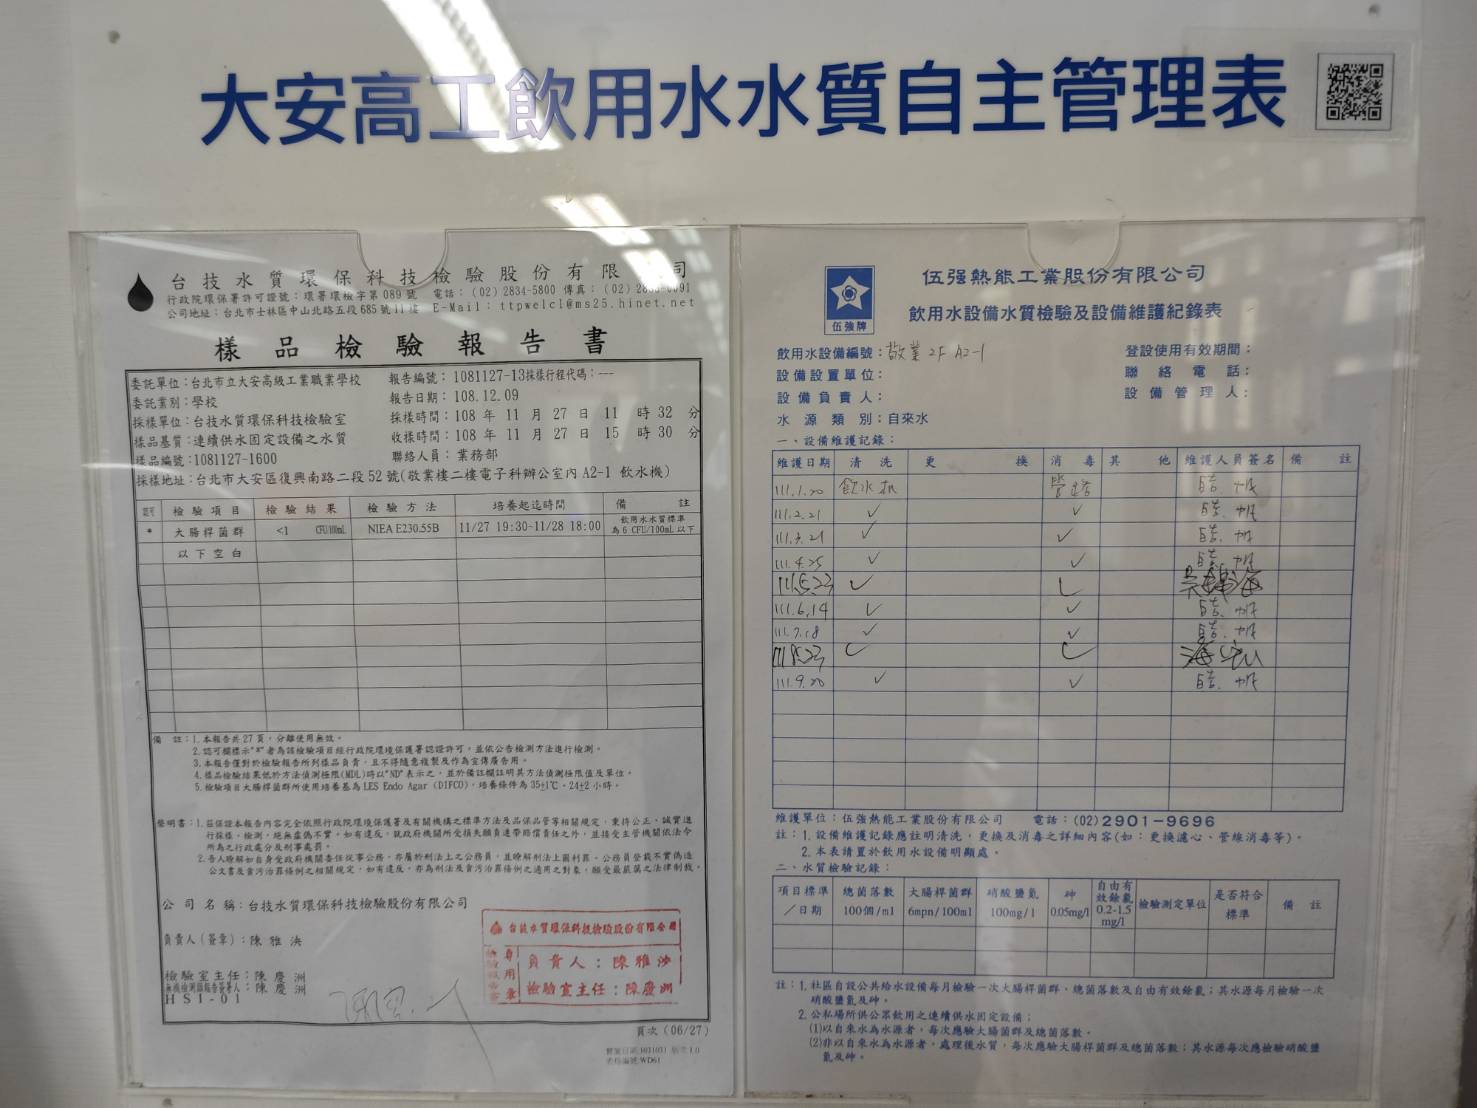 大安高工飲用水水質自主管理表
台技水質環保科技檢驗股份有限 司
行政院環保署許可證號：環署環檢字第089號 電話：(02)2834-5800 傳真：(02)
公司地址：台北市士林區中山北路五段685號11樓 E-Mail：ttpwelcl@ms25.hinet.net
樣品檢驗報告書
委託單位：台北市立大安高級工業職業學校 報告編號：1081127-13採樣行程代碼：---
委託業別：學校 報告日期：108.12.09
採樣單位：台技水質環保科技檢驗室 採樣時間：108 年 11 月 27 日 11 時 32 分
樣品基質：連續供水固定設備之水質 收樣時間：108 年 11 月 27 日 15 時 30 分
樣品編號：1081127-1600 聯絡人員：業務部
採樣地址：台北市大安區復興南路二段52號(敬業樓二樓電子科辦公室內 A2-1 飲水機)
認可 檢驗項目 檢驗結果 檢驗方法 培養起迄時間 備註
* 大腸桿菌群 <1 CFU/100mL NIEA E230.55B 11/27 19:30-11/28 18:00 飲用水水質標準
為6 CFU/100mL以下
以下空白
備 註：1.本報告共27頁，分離使用無效。
2.認可欄標示"*"者為該檢驗項目經行政院環境保護署認證許可，並依公告檢測方法進行檢測。
3.本報告僅對於檢驗報告所列樣品負責，且不得隨意複製及作為宣傳廣告用。
4.樣品檢驗結果低於方法偵測極限(MDL)時以"ND"表示之，並於備註欄註明其方法偵測極限值及單位。
5.檢驗項目大腸桿菌群所使用培養基為LES Endo Agar (DIFCO)，培養條件為35±1℃、24±2小時。
聲明書：1.茲保證本報告內容完全依照行政院環境保護署及有關機構之標準方法及品保品管等相關規定，秉持公正、誠實進
行採樣、檢測，絕無虛偽不實，如有違反，就政府機關所受損失願負連帶賠償責任之外，並接受主管機關依法令
所為之行政處分及刑事處罰。
2.吾人瞭解如自身受政府機關委任從事公務，亦屬於刑法上之公務員，並瞭解刑法上圖利罪、公務員登載不實偽造
公文書及貪污治罪條例之相關規定，如有違反，亦為刑法及貪污治罪條例之適用之對象，願受最嚴厲之法律制裁。
公司名稱：台技水質環保科技檢驗股份有限公司
負責人(簽章)：陳雅泱
檢驗室主任：陳慶洲
無機檢測類報告簽署人：陳慶洲
HSI-01
台技水質環保科技檢驗股份有限公司
檢驗報告書專用章
負責人：陳雅泱
檢驗室主任：陳慶洲
頁次(06/27)
伍强牌
伍强熱能工業股份有限公司
飲用水設備水質檢驗及設備維護紀錄表
飲用水設備編號：敬業 2F A2-1 登設使用有效期間：
設備設置單位： 聯絡電話：
設備負責人： 設備管理人：
水源類別：自來水
一、設備維護記錄：
維護日期 清洗 更換 消毒 其他 維護人員簽名 備註
111.1.20 飲水机 管路 皓.帆
111.2.21 ✓ ✓ 皓.帆
111.3.21 ✓ ✓ 皓.帆
111.4.25 ✓ ✓ 皓.帆
111.5.23 ✓ ✓
111.6.14 ✓ ✓ 皓.帆
111.7.18 ✓ ✓ 皓.帆
111.8.23 ✓ ✓
111.9.20 ✓ ✓ 皓.帆
維護單位：伍强熱能工業股份有限公司 電話：(02)2901-9696
註：1.設備維護記錄應註明清洗、更換及消毒之詳細內容(如：更換濾心、管線消毒等)。
2.本表請置於飲用水設備明顯處。
二、水質檢驗記錄：
項目標準／日期 總菌落數 100個/ml 大腸桿菌群 6mpn/100ml 硝酸鹽氮 100mg/l 砷 0.05mg/l 自由有效餘氯 0.2-1.5 mg/l 檢驗測定單位 是否符合標準 備註
註：1.社區自設公共給水設備每月檢驗一次大腸桿菌群、總菌落數及自由有效餘氯；其水源每月檢驗一次
硝酸鹽氮及砷。
2.公私場所供公眾飲用之連續供水固定設備：
(1)以自來水為水源者，每次應驗大腸菌群及總菌落數。
(2)非以自來水為水源者，處理後水質，每次應驗大腸桿菌群及總菌落數；其水源每次應檢驗硝酸鹽
氮及砷。